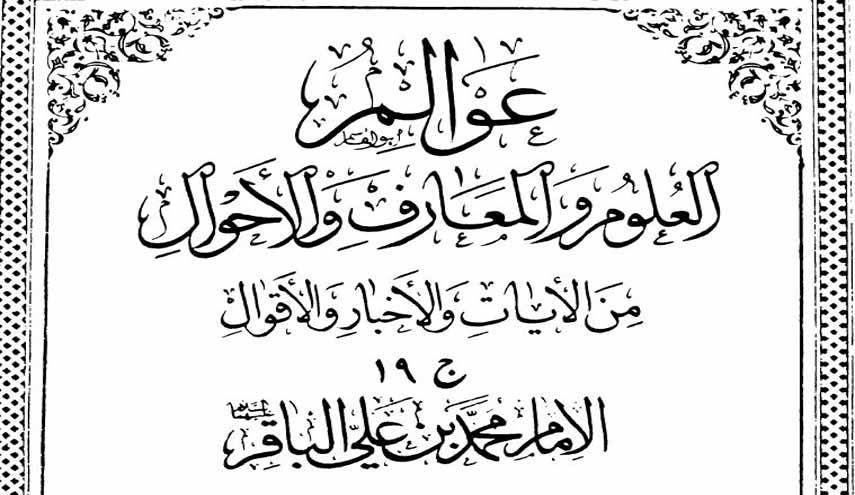 عَوَالِمُ
أبو القاسم
العُلُومِ وَالمَعَارِفِ وَالأَحْوَالِ
مِنَ الآيَاتِ وَالأَخْبَارِ وَالأَقْوَالِ
ج ١٩
الإمام محمّد بن عليّ الباقر عليهما السلام